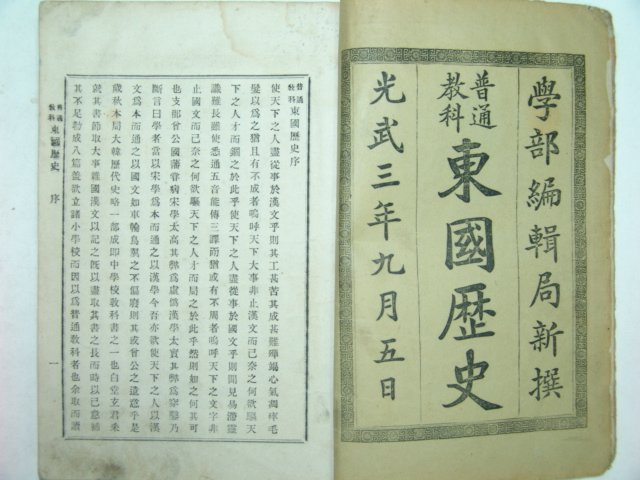 學部編輯局新撰
普通教科
東國歷史
光武三年九月五日
普通教科 東國歷史序
使天下之人盡從事於漢文乎則其工甚苦其成甚難殫竭心氣凋瘁毛
髮以爲之猶且有不成者嗚呼天下大事非止漢文而已奈之何欲驅天
下之人才而錮之於此乎使天下之人盡從事於國文乎則聞見易澁靈
識難長雖使悉通五音能傳三譯而猶或有不周者嗚呼天下之文字非
止國文而已奈之何欲驅天下之人才而局之於此乎然則如之何其可
也支那曾公國藩甞病宋學太高其弊爲虛僞漢學太實其弊爲窄鑿乃
斷言曰學者當以宋學爲本而通之以漢學今吾亦欲使天下之人以漢
文爲本而通之以國文如車輪鳥翼之不偏廢則其或曾公之遺意乎是
歲秋本局大韓歷代史略一部成即中學校教科書之一也白堂玄君采
就其書節取大事雜國漢文以記之旣以盡取其書之長而時以己意補
其不足勒成八篇蓋欲立諸小學校而因以爲普通教科者也余取而讀
普通教科 東國歷史 序 一